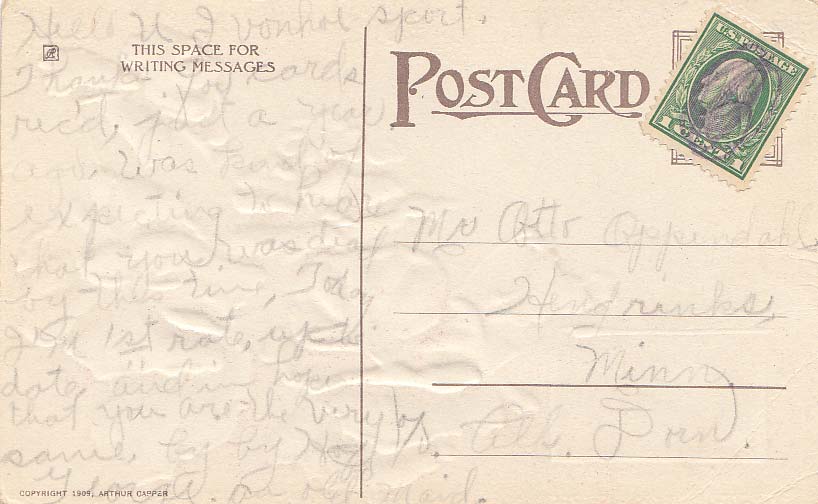 Hello U
sport.
THIS SPACE FOR
WRITING MESSAGES
Thanks for cards
rec'd, just a year
ago. Was kind of
expecting to hear
that you was dead
by this time, Today
I'm 1st rate, up to
date, and in hope
that you are the very
same, by by
an old maid.
COPYRIGHT 1909, ARTHUR CAPPER
POST CARD
U.S. POSTAGE
1 CENT 1
Mr Otto Oppendahl
Hendrinks,
Minn.